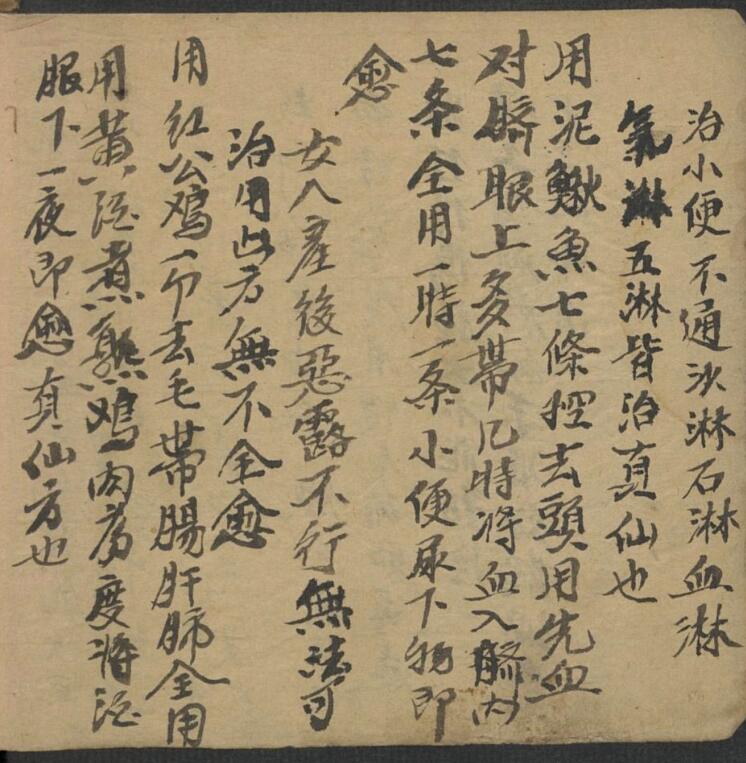 治小便不通沙淋石淋血淋
氣淋五淋皆治真仙也
用泥鰍魚七條控去頭用先血
对臍眼上多帶几時将血入臍内
七条全用一時一条小便尿下物即
愈
女人産後惡露不行無法可
治用此方無不全愈
用红公鸡一个去毛帶腸肝肺全用
用黄酒煮熟鸡肉為度將酒
服下一夜即愈真仙方也